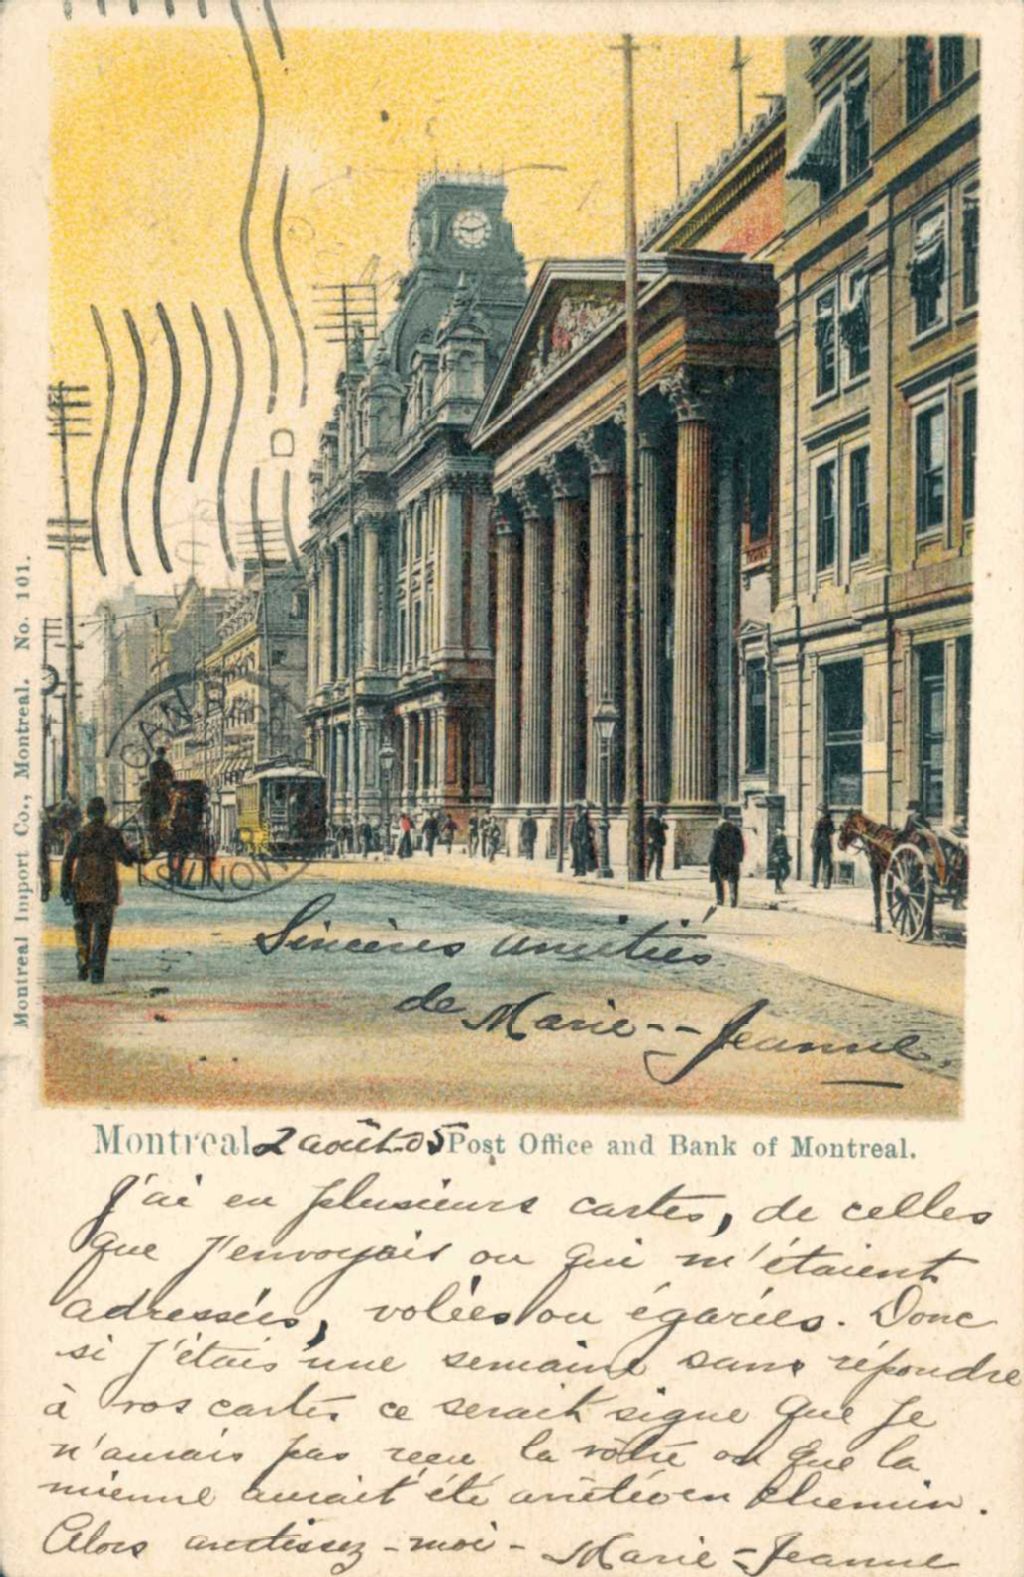 CANADA
Montreal Import Co., Montreal. No. 101.
Sincères amitiés
de Marie--Jeanne.
Montreal 2 août-05 Post Office and Bank of Montreal.
J'ai eu plusieurs cartes, de celles
que j'envoyais ou qui m'étaient
adressées, volées ou égarées. Donc
si j'étais une semaine sans répondre
à vos cartes ce serait signe que je
n'aurais pas reçu la vôtre ou que la
mienne aurait été arrêtée en chemin.
Alors avertissez-moi- Marie-Jeanne